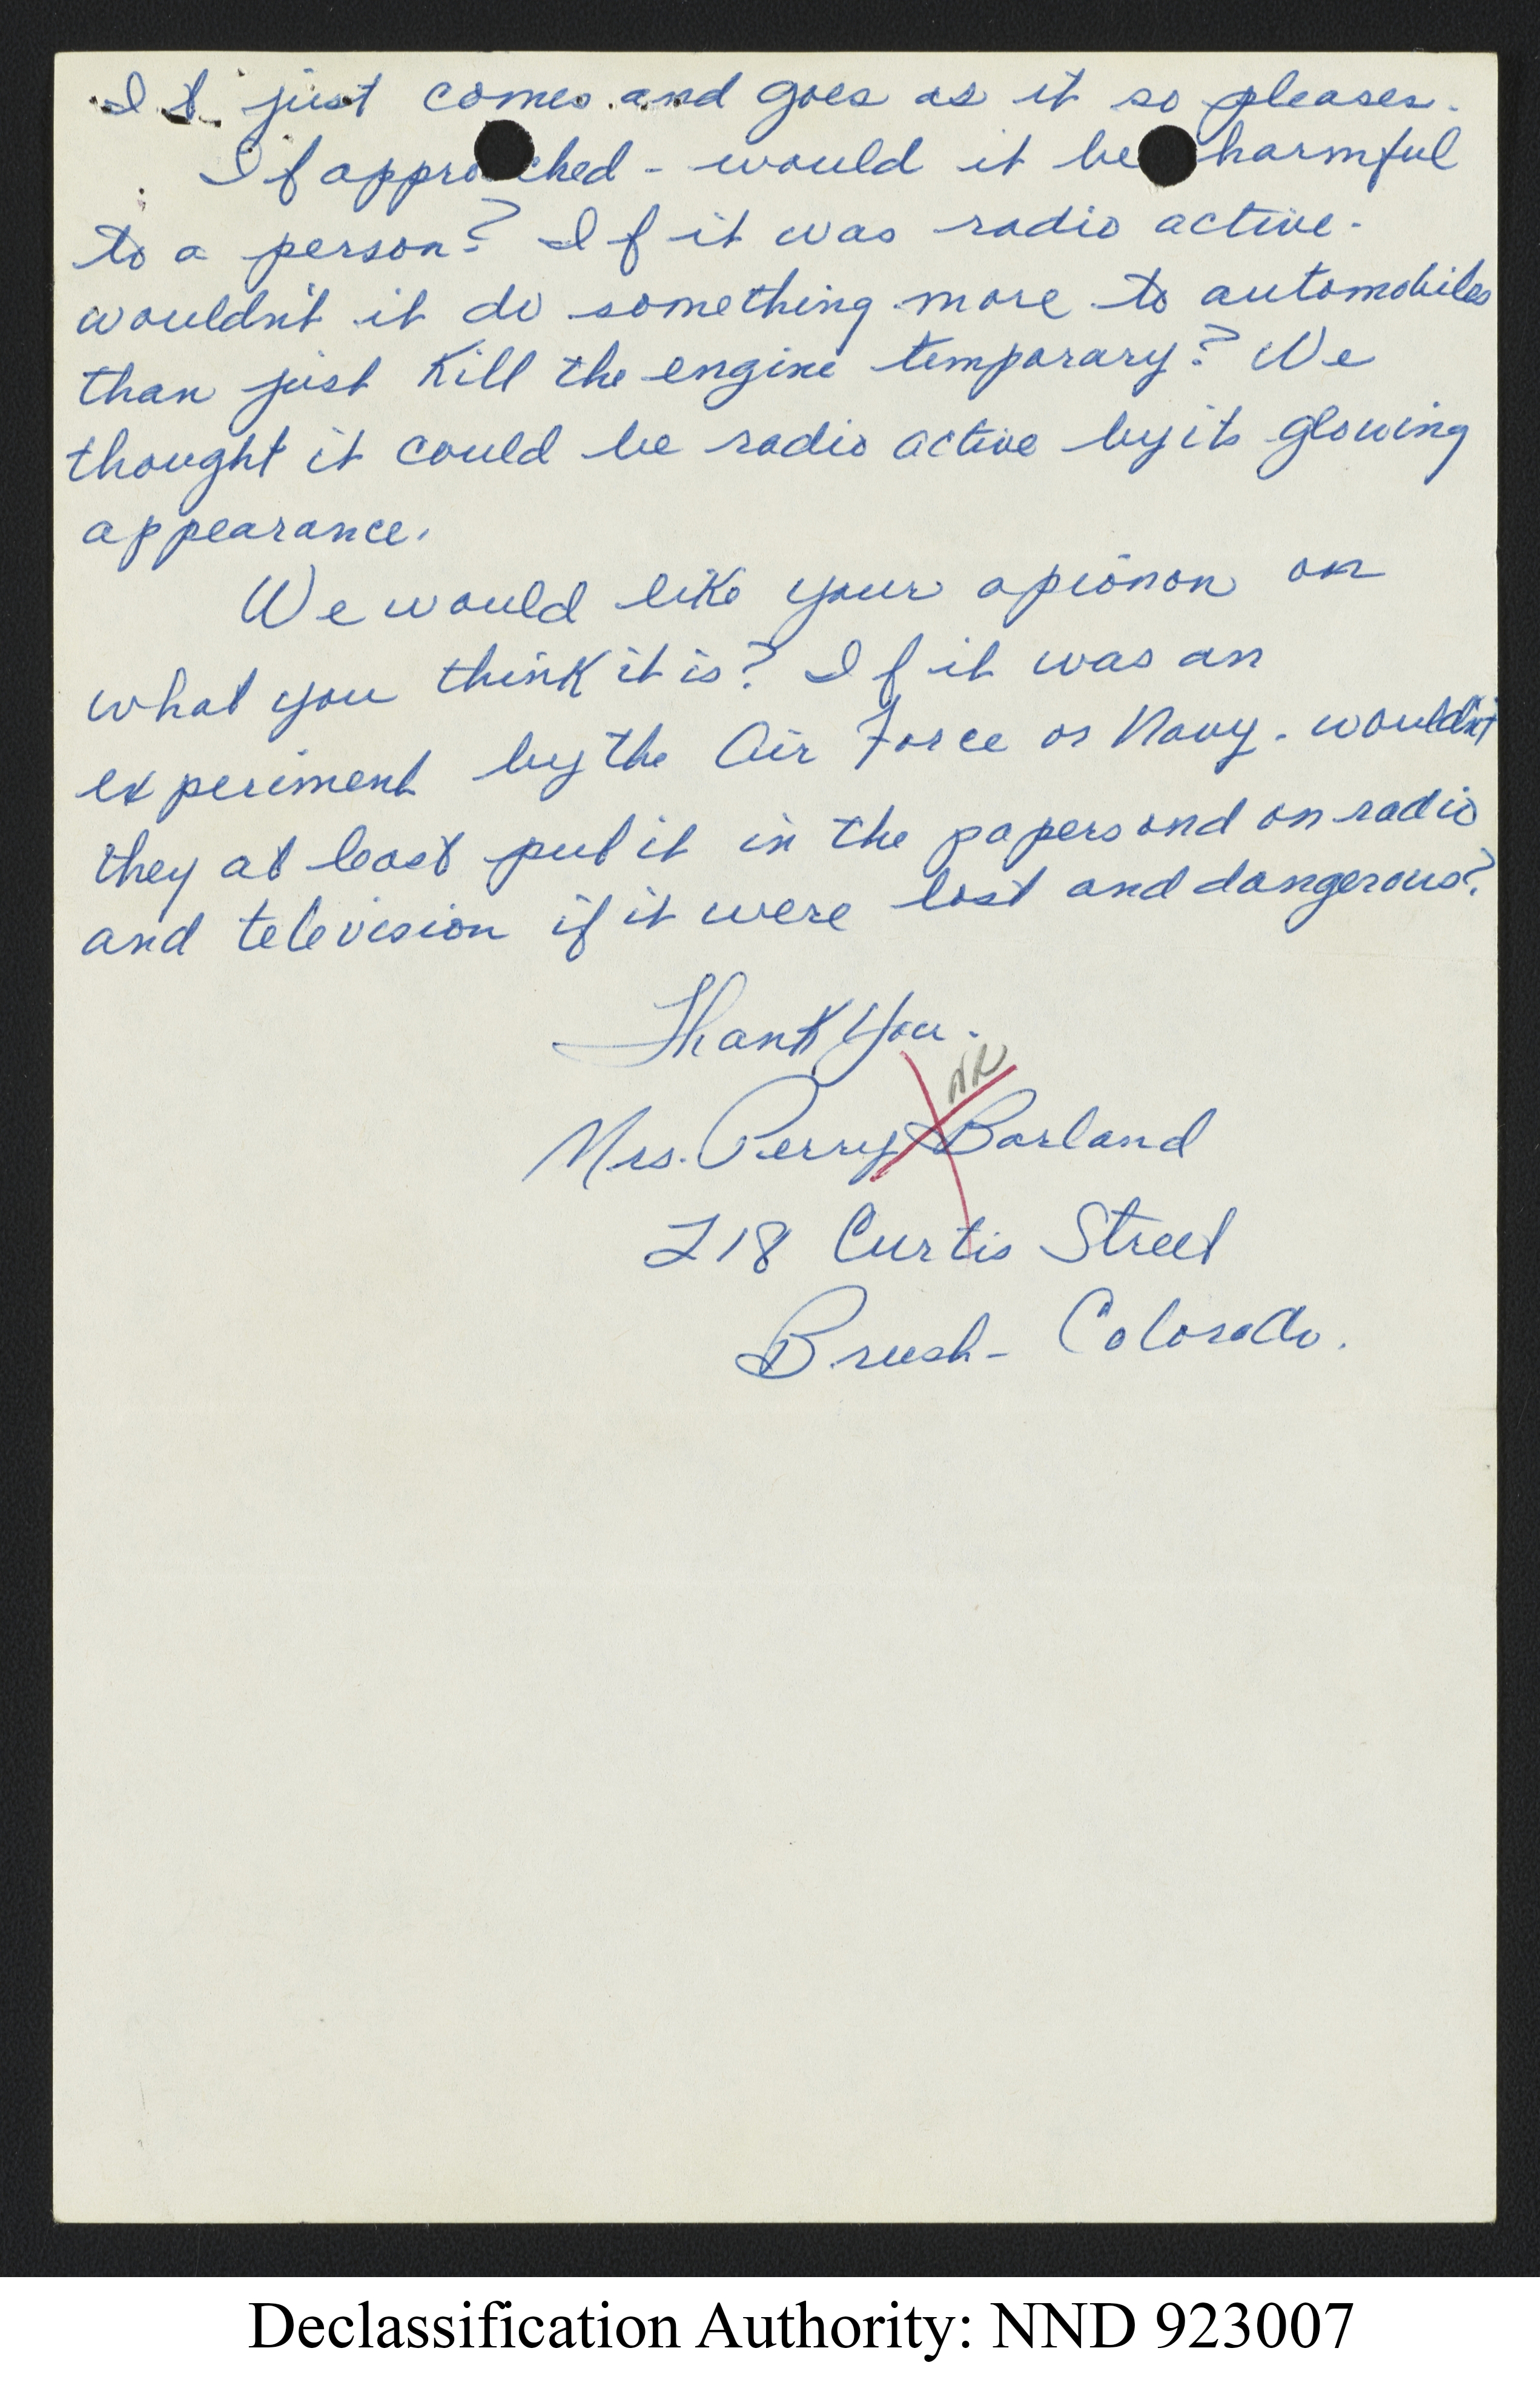 It just comes and goes as it so pleases.
If approched - would it be harmful
to a person? If it was radio active.
wouldn't it do something more to automobiles
than just Kill the engine temporary? We
thought it could be radio active by its glowing
appearance.
We would like your opionon on
what you think it is? If it was an
experiment by the Air Force or Navy. wouldn't
they at least put it in the papers and on radio
and television if it were lost and dangerous?
Thank You.
NR
Mrs. Perry Borland
218 Curtis Street
Brush - Colorado.
Declassification Authority: NND 923007